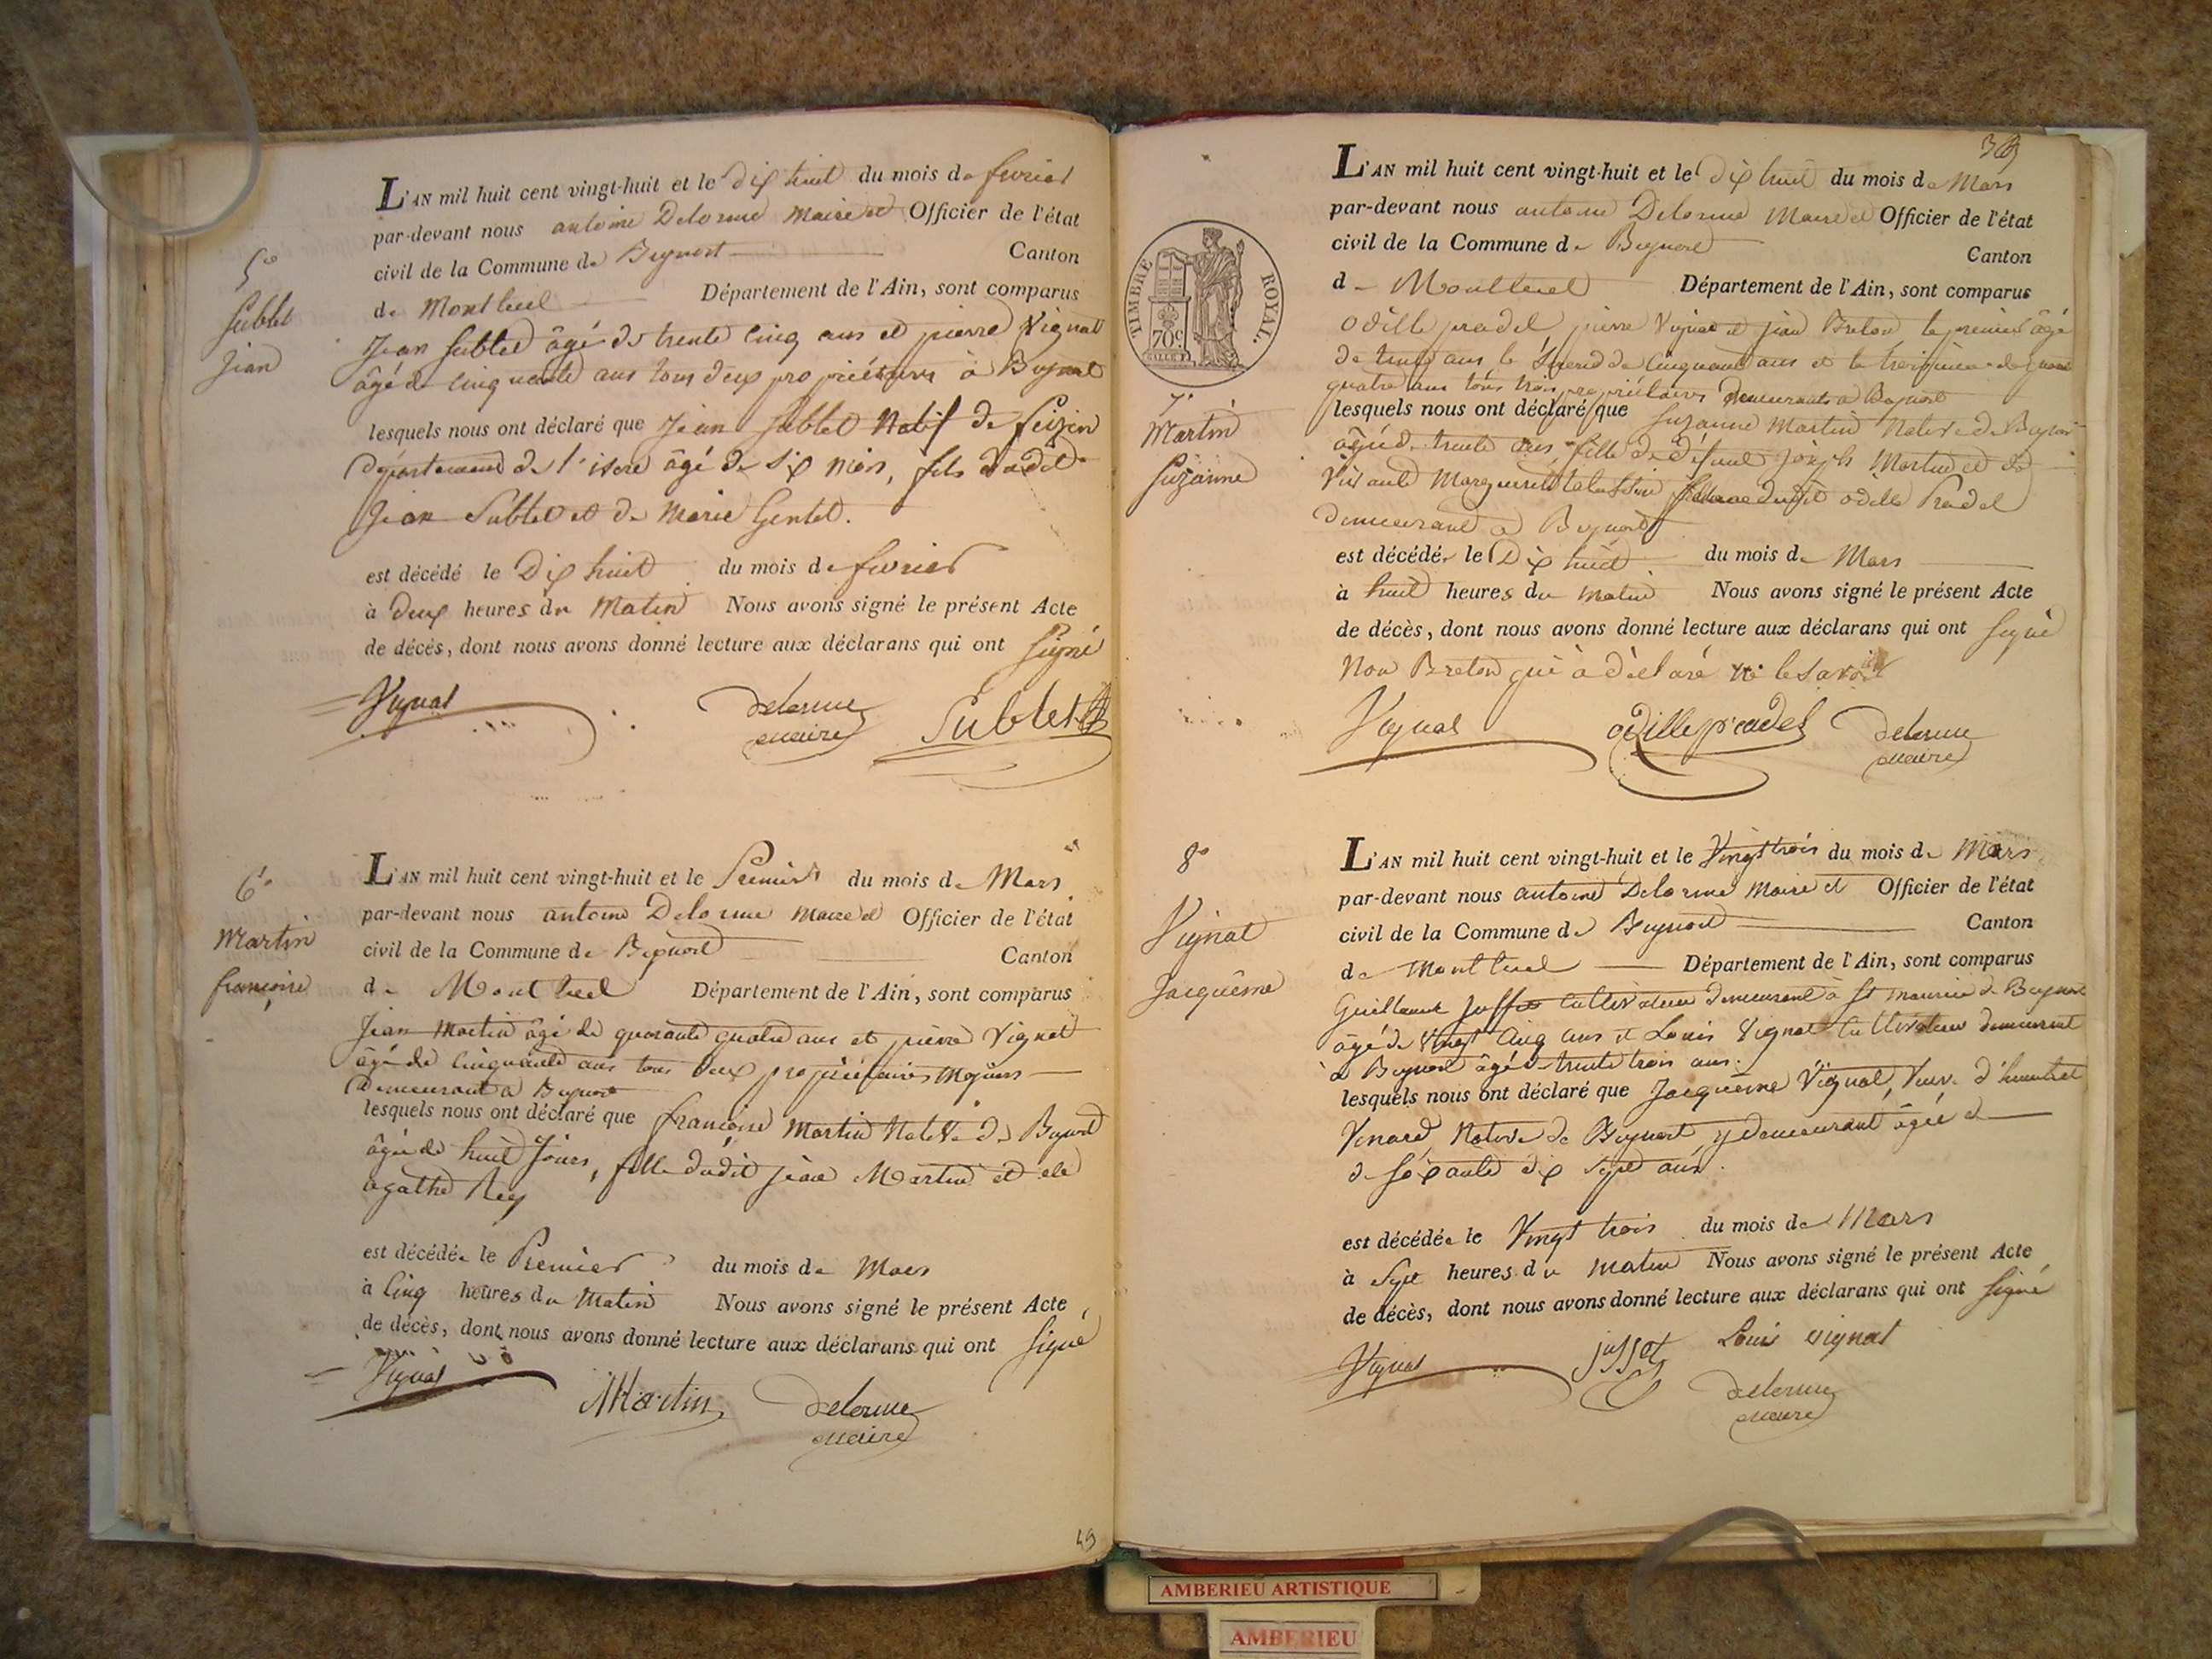 5°
Sublet
Jean
L'AN mil huit cent vingt-huit et le dix huit du mois de fevrier
par-devant nous antoine Delorme maire et Officier de l'état
civil de la Commune de Beynost Canton
de Montluel Département de l'Ain, sont comparus
Jean Sublet âgé de trente cinq ans et pierre Vignat
âgé de cinquante ans tous deux propriétaires à Beynost
lesquels nous ont déclaré que Jean Sublet Natif de
Département de l'isere âgé de six mois, fils dudit
Jean Sublet et de Marie Gentet.
est décédé le Dix huit du mois de fevrier
à deux heures du Matin Nous avons signé le présent Acte
de décès, dont nous avons donné lecture aux déclarans qui ont signé
Vignat delorme Sublet
maire
6°
Martin
francoise
L'AN mil huit cent vingt-huit et le Premier du mois de Mars
par-devant nous antoine Delorme Maire et Officier de l'état
civil de la Commune de Beynost Canton
de Montluel Département de l'Ain, sont comparus
Jean Martin âgé de quarante quatre ans et pierre Vignat
âgé de cinquante ans tous deux propriétaires
Demeurant a Beynost
lesquels nous ont déclaré que francoise Martin Native de Beynost
âgée de huit Jours, fille dudit jean Martin et de
agathe Rey
est décédée le Premier du mois de Mars
à Cinq heures du Matin Nous avons signé le présent Acte
de décès, dont nous avons donné lecture aux déclarans qui ont signé
Vignat Martin delorme
maire
49
TIMBRE ROYAL.
70c
7°
Martin
Suzanne
L'AN mil huit cent vingt-huit et le Dix huit du mois de Mars
par-devant nous antoine Delorme Maire et Officier de l'état
civil de la Commune de Beynost Canton
de Montluel Département de l'Ain, sont comparus
Odille pradel pierre Vignat et jean Breton le premier âgé
de ans le second de Cinquante ans et le troisieme de
quatre ans tous trois propriétaires demeurants a Beynost
lesquels nous ont déclaré que Suzanne Martin Native de Beynost
âgée de trente ans, fille de défunt joseph Martin et de
Vivante Marguerite femme dudit odille Pradel
Demeurant a Beynost
est décédée le Dix huit du mois de Mars
à huit heures du matin Nous avons signé le présent Acte
de décès, dont nous avons donné lecture aux déclarans qui ont signé
Non Breton qui à déclaré ne le savoir
Vignat odille pradel delorme
maire
8°
Vignat
Jacquême
L'AN mil huit cent vingt-huit et le Vingt trois du mois de Mars
par-devant nous antoine Delorme Maire et Officier de l'état
civil de la Commune de Beynost Canton
de Montluel Département de l'Ain, sont comparus
Guillaume cultivateur demeurant à St Maurice de Beynost
âgé de Vingt Cinq ans et Louis Vignat Cultivateur demeurant
à Beynost âgé de trente trois ans.
lesquels nous ont déclaré que Jacquême Vignat, Veuve
Venard, Native de Beynost y demeurant âgée
de soixante dix sept ans.
est décédée le Vingt trois du mois de Mars
à Sept heures du matin Nous avons signé le présent Acte
de décès, dont nous avons donné lecture aux déclarans qui ont signé
Vignat Louis vignat
delorme
maire
AMBERIEU ARTISTIQUE
AMBERIEU